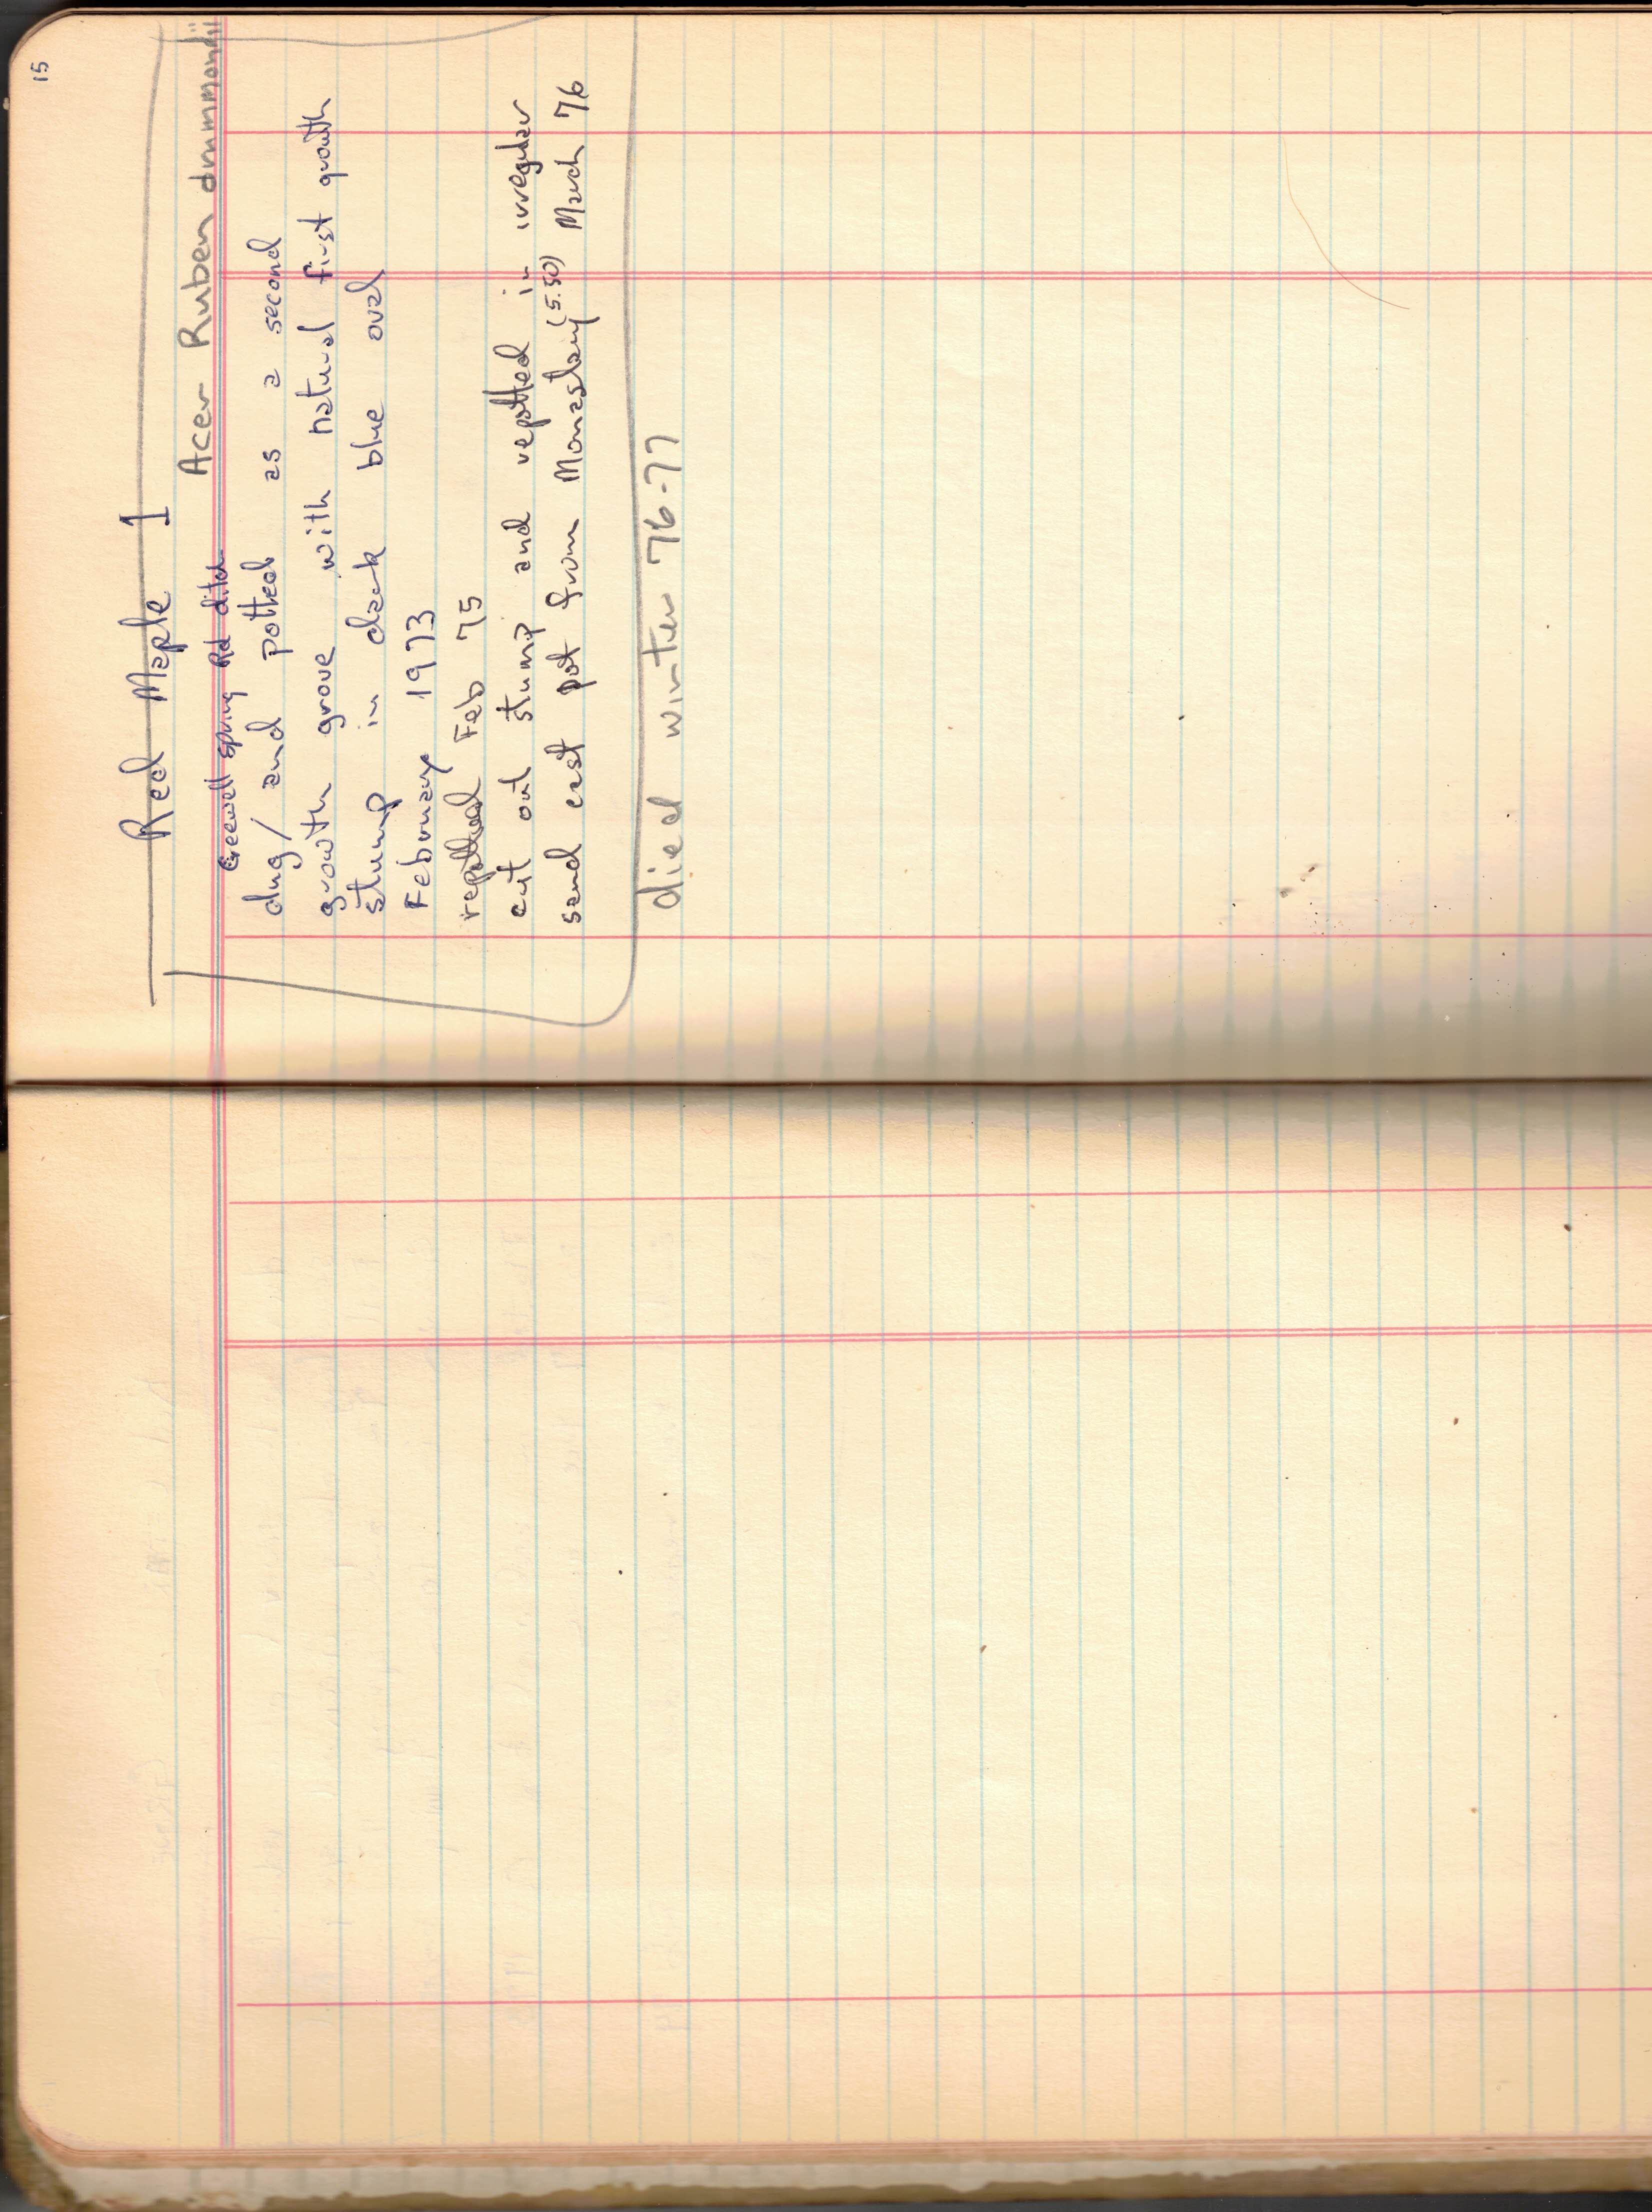 15
Red Maple 1
Acer Ruben drummondii
Greewell spring Rd ditch
dug / and potted as a second
growth grove with natural first growth
stump in dark blue oval
February 1973
repotted Feb 75
cut out stump and repotted in irregular
sand cast pot from Monastary (5.50) March 76
died winter 76-77